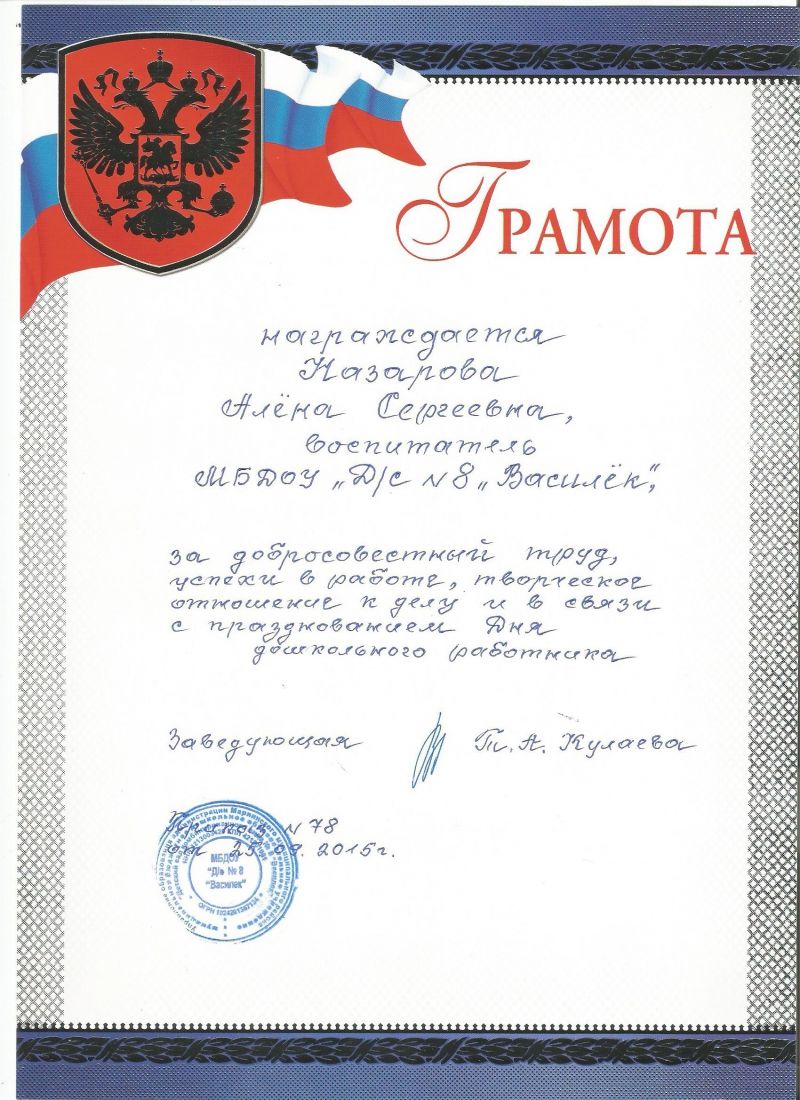 ГРАМОТА
награждается
Назарова
Алёна Сергеевна,
воспитатель
МБДОУ „Д/с №8 „Василёк",
за добросовестный труд,
успехи в работе, творческое
отношение к делу и в связи
с празднованием Дня
дошкольного работника
Заведующая Т.А. Кулаева
Приказ №78
от 25.09.2015г.
МБДОУ
"Д/с № 8
"Василек"